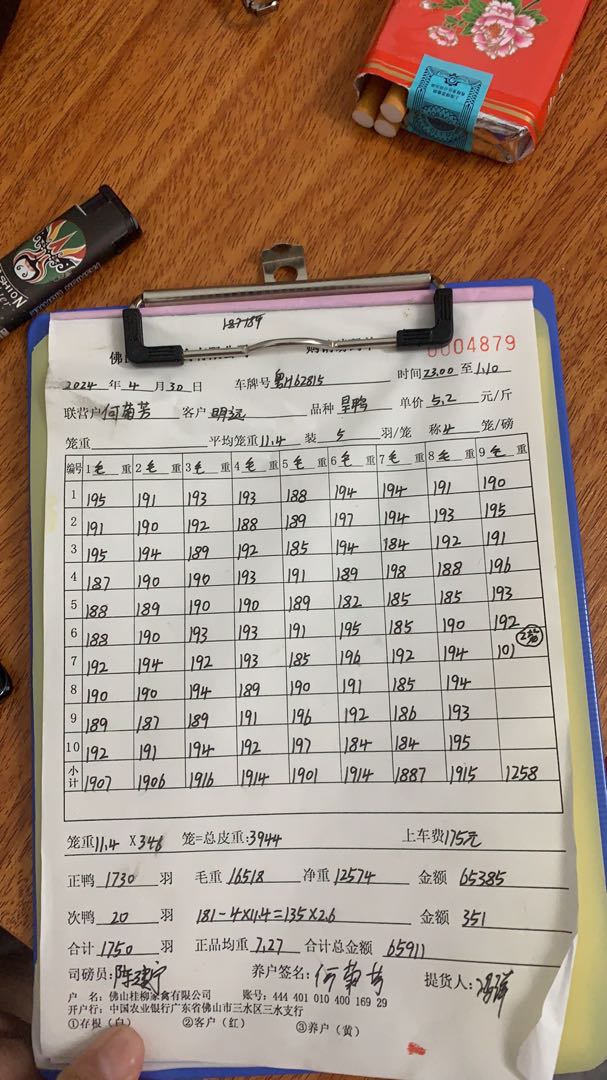 187789
0004879
2024 年 4 月 30 日 车牌号 粤H62815 时间 23.00 至 1.10
联营户 何菊芳 客户 明远 品种 旱鸭 单价 5.2 元/斤
笼重 平均笼重 11.4 装 5 羽/笼 称 4 笼/磅
编号 1 毛 重 2 毛 重 3 毛 重 4 毛 重 5 毛 重 6 毛 重 7 毛 重 8 毛 重 9 毛 重
1 195 191 193 193 188 194 194 191 190
2 191 190 192 188 189 197 194 193 195
3 195 194 189 192 185 194 184 192 191
4 187 190 190 193 191 189 198 188 196
5 188 189 190 190 189 182 185 185 193
6 188 190 193 193 191 195 185 190 192
7 192 194 192 193 185 196 192 194 101 2笼
8 190 190 194 189 190 191 185 194
9 189 187 189 191 196 192 186 193
10 192 191 194 192 197 184 184 195
小计 1907 1906 1916 1914 1901 1914 1887 1915 1258
笼重 11.4 X 346 笼=总皮重:3944 上车费175元
正鸭 1730 羽 毛重 16518 净重 12574 金额 65385
次鸭 20 羽 181-4X11.4=135X2.6 金额 351
合计 1750 羽 正品均重 7.27 合计总金额 65911
司磅员: 养户签名: 何菊芳 提货人:
户 名: 佛山桂柳家禽有限公司 账号: 444 401 010 400 169 29
开户行: 中国农业银行广东省佛山市三水区三水支行
①存根(白) ②客户(红) ③养户(黄)